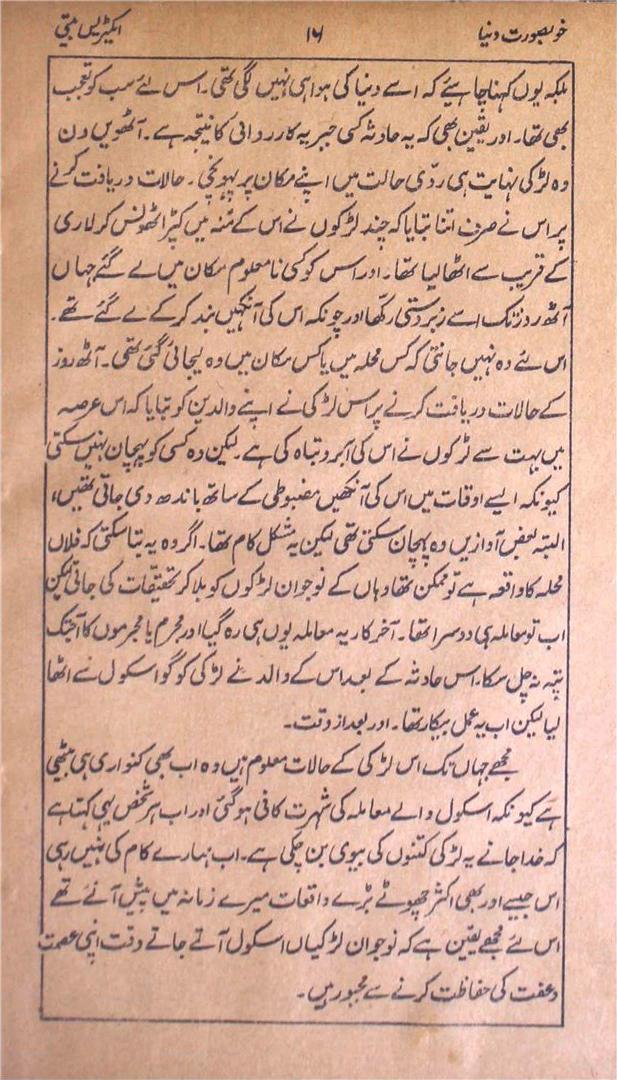 خوبصورت دنیا
۱۶
ایکٹریس مبتی
بلکہ یوں کہنا چاہیئے کہ اسے دنیا کی ہوا ہی نہیں لگی تھی۔ اس لئے سب کو تعجب
بھی تھا۔ اور یقین بھی کہ یہ حادثہ کسی جبریہ کارروائی کا نتیجہ ہے۔ آٹھویں دن
وہ لڑکی نہایت ہی ردّی حالت میں اپنے مکان پر پہونچی۔ حالات دریافت کرنے
پر اس نے صرف اتنا بتایا کہ چند لڑکوں نے اس کے مُنہ میں کپڑا ٹھونس کر لاری
کے قریب سے اٹھا لیا تھا۔ اور اس کو کسی نامعلوم مکان میں لے گئے جہاں
آٹھ روز تک اسے زبردستی رکھا اور چونکہ اس کی آنکھیں بند کر کے لے گئے تھے۔
اس لئے وہ نہیں جانتی کہ کس محلہ میں یا کس مکان میں وہ لیجائی گئی تھی۔ آٹھ روز
کے حالات دریافت کرنے پر اس لڑکی نے اپنے والدین کو بتایا کہ اس عرصہ
میں بہت سے لڑکوں نے اس کی آبرو تباہ کی ہے۔ لیکن وہ کسی کو پہچان نہیں سکتی
کیونکہ ایسے اوقات میں اس کی آنکھیں مضبوطی کے ساتھ باندھ دی جاتی تھیں،
البتہ بعض آوازیں وہ پہچان سکتی تھی لیکن یہ مشکل کام تھا۔ اگر وہ یہ بتا سکتی کہ فلاں
محلہ کا واقعہ ہے تو ممکن تھا وہاں کے نوجوان لڑکوں کو بلا کر تحقیقات کی جاتی لیکن
اب تو معاملہ ہی دوسرا تھا۔ آخر کار یہ معاملہ یوں ہی رہ گیا اور مجرم یا مجرموں کا آجتک
پتہ نہ چل سکا۔ اس حادثہ کے بعد اس کے والد نے لڑکی کو گو اسکول سے اٹھا
لیا لیکن اب یہ عمل بیکار تھا۔ اور بعد از وقت۔
مجھے جہاں تک اس لڑکی کے حالات معلوم ہیں وہ اب بھی کنواری ہی بیٹھی
ہے کیونکہ اسکول والے معاملہ کی شہرت کافی ہو گئی اور اب ہر شخص یہی کہتا ہے
کہ خدا جانے یہ لڑکی کتنوں کی بیوی بن چکی ہے۔ اب ہمارے کام کی نہیں رہی
اس جیسے اور بھی اکثر چھوٹے بڑے واقعات میرے زمانہ میں پیش آئے تھے
اس لئے مجھے یقین ہے کہ نوجوان لڑکیاں اسکول آتے جاتے وقت اپنی عصمت
و عفت کی حفاظت کرنے سے مجبور ہیں۔